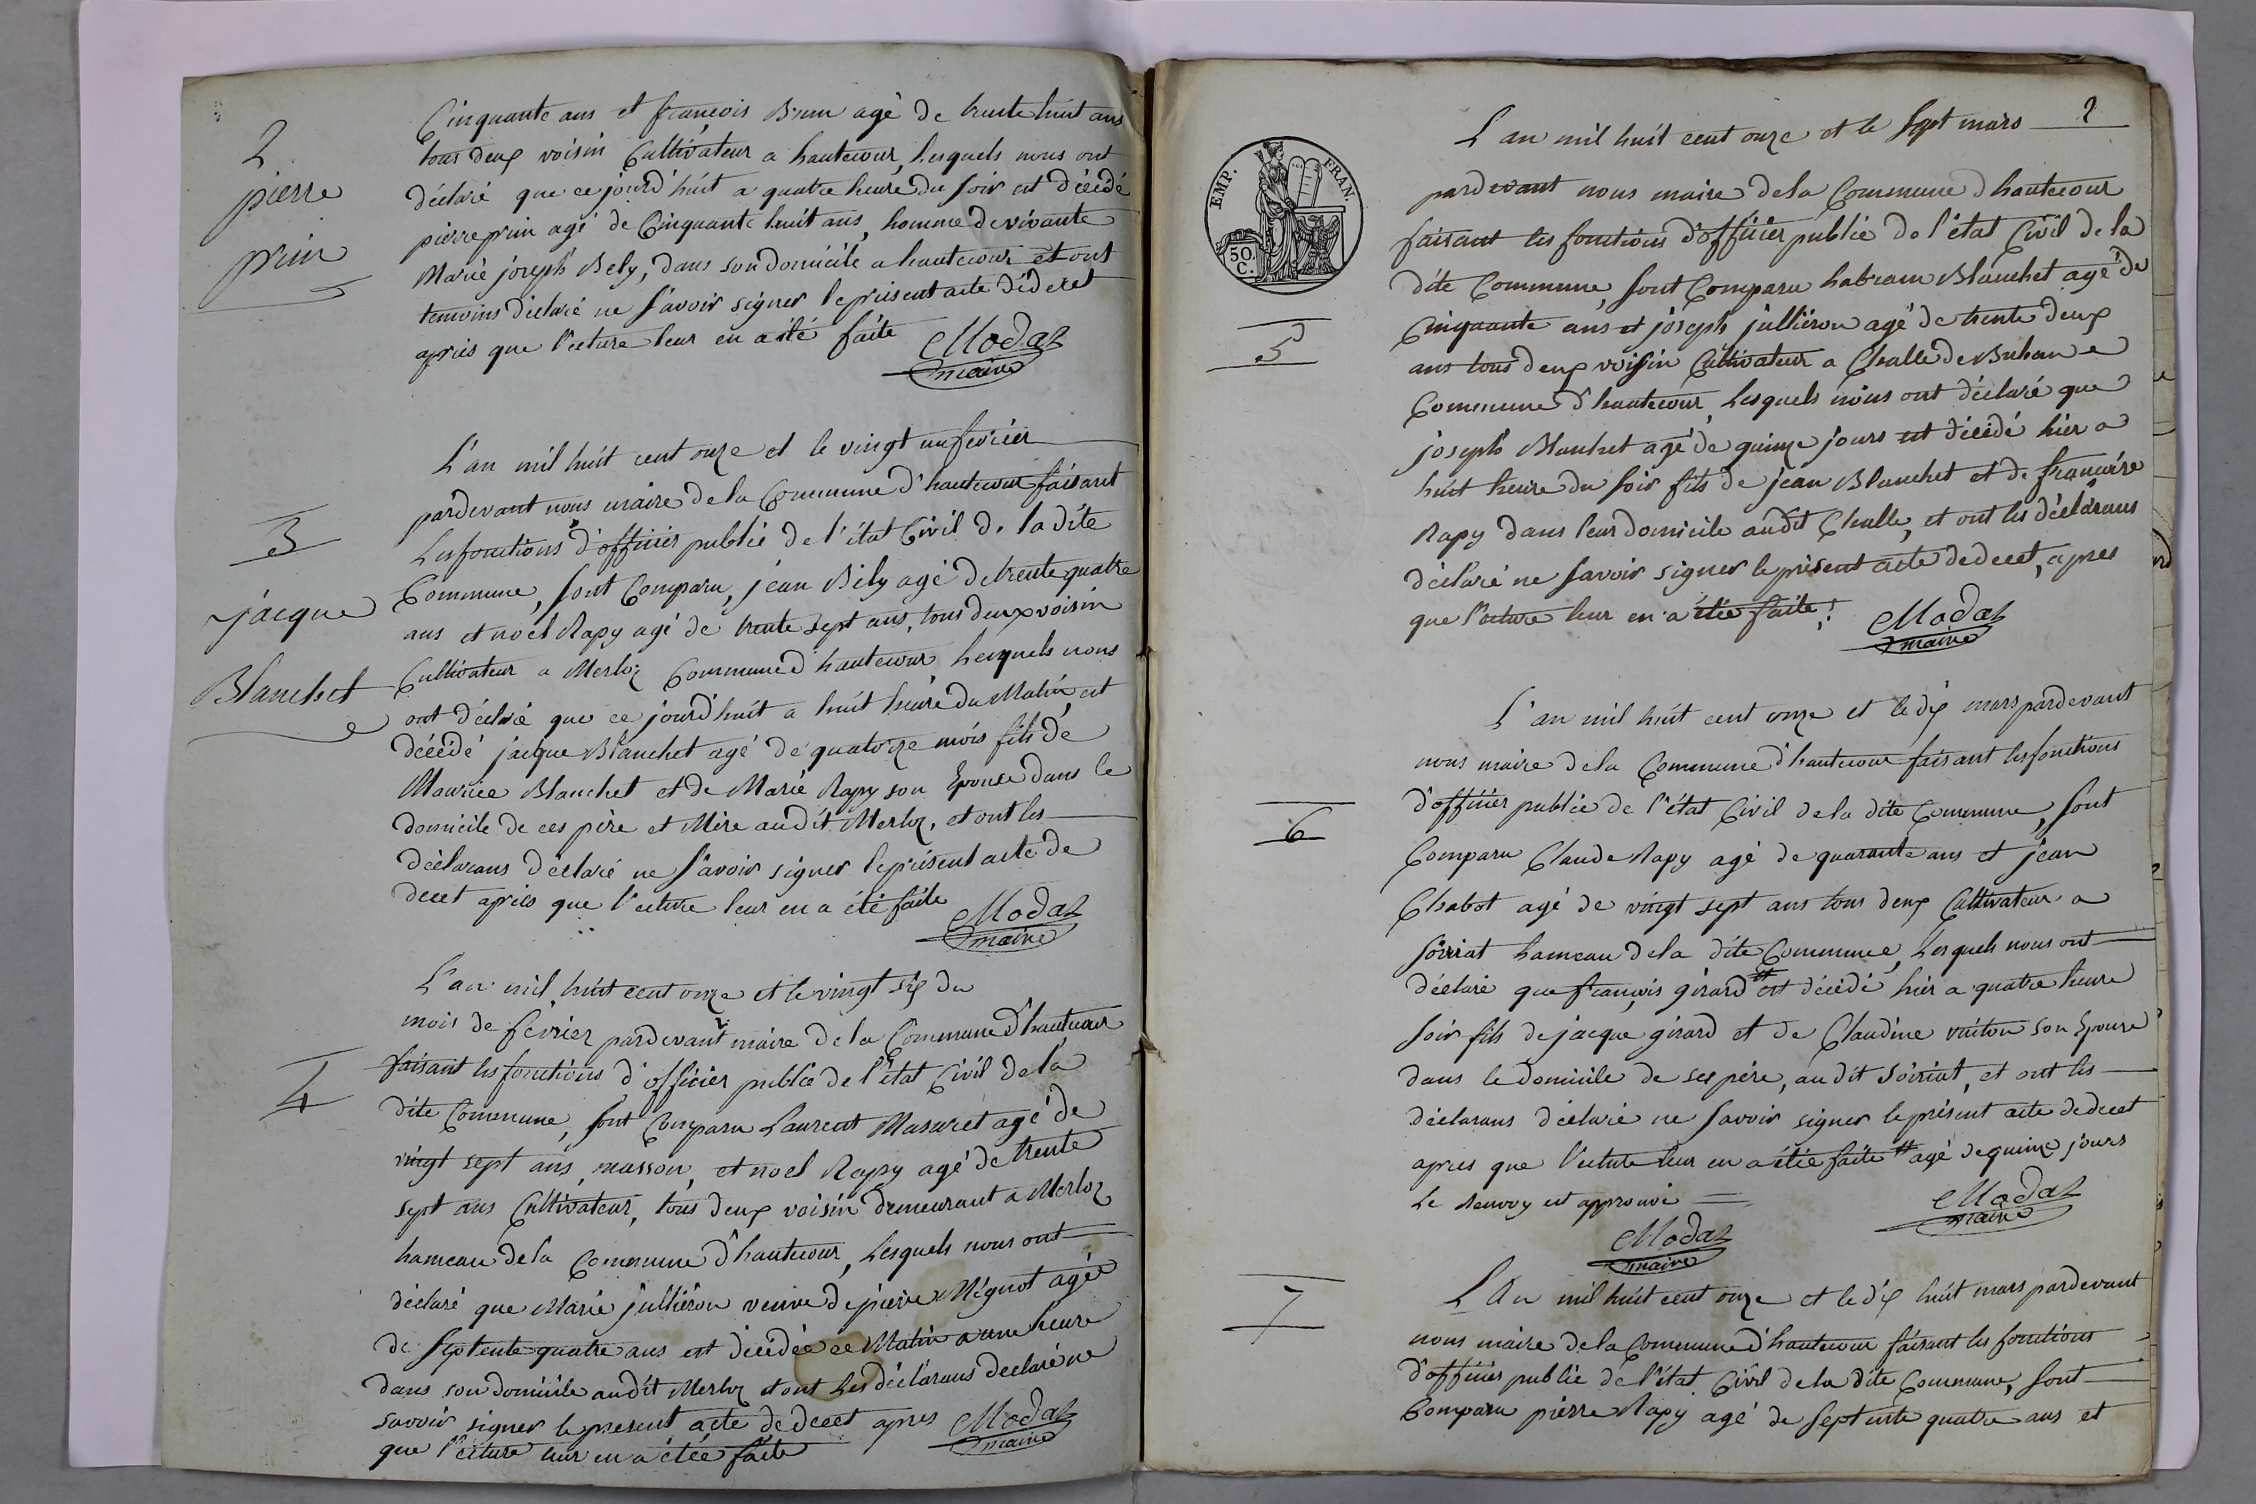 2
pierre
prin
Cinquante ans et françois Brun agé de trente huit ans
tous deux voisin Cultivateur a hautecour, lesquels nous ont
déclaré que ce jourd'huit a quatre heure du soir est décédé
pierre prin agé de Cinquante huit ans, homme de vivante
Marie joseph Bely, dans son domicile a hautecour et ont
temoins déclaré ne savoir signer le présent acte dédecet
après que l'ecture leur en a été faite
Modaz
maire
3
jacque
Blanchet
L'an mil huit cent onze et le vingt un fevrier
pardevant nous maire de la Commune d'hautecour faisant
Les fonctions d'officier public de l'état Civil de la dite
Commune, sont Comparu, jean Bely agé de trente quatre
ans et noel Rapy agé de trente sept ans, tous deux voisin
Cultivateur a Merloz Commune d'hautecour lesquels nous
ont déclaré que ce jourd'huit a huit heure du Matin est
décédé jacque Blanchet agé de quatorze mois fils de
Maurice Blanchet et de Marie Rapy son Epouse dans le
domicile de ces père et Mère audit Merloz, et ont les
déclarans déclaré ne savoir signer le présent acte de
decet après que l'ecture leur en a été faite
Modaz
maire
4
L'an mil huit cent onze et le vingt six du
mois de fevrier pardevant maire de la Commune d'hautecour
faisant les fonctions d'officier public de l'état Civil de la
dite Commune, sont Comparu Laurent Masuret agé de
vingt sept ans, masson, et noel Rapy agé de trente
sept ans Cultivateur, tous deux voisin demeurant a Merloz
hameau de la Commune d'hautecour, Lesquels nous ont
déclaré que Marie jullieron veuve de pierre Mégnot agée
de septente quatre ans est décédée ce Matin a une heure
dans son domicile audit Merloz et ont Les déclarans declaré ne
savoir signer le present acte de decet apres
que l'ecture leur en a étée faite
Modaz
maire
2
EMP. FRAN.
50 C.
5
L'an mil huit cent onze et le sept mars
pardevant nous maire de la Commune d'hautecour
faisant les fonctions d'officier public de l'état Civil de la
dite Commune, sont Comparu habram Blanchet agé de
Cinquante ans et joseph jullieron agé de trente deux
ans tous deux voisin Cultivateur a Challe
Commune d'hautecour, Lesquels nous ont déclaré que
joseph Blanchet agé de quinze jours est décédé hier a
huit heure du soir fils de jean Blanchet et de françoise
Rapy dans leur domicile audit Challe, et ont les déclarans
déclaré ne savoir signer le présent acte de decet, apres
que l'ecture leur en a étée faite
Modaz
maire
6
L'an mil huit cent onze et le dix mars pardevant
nous maire de la Commune d'hautecour faisant les fonctions
d'officier public de l'état Civil de la dite Commune, sont
Comparu Claude Rapy agé de quarante ans et jean
Chabot agé de vingt sept ans tous deux Cultivateur a
soiriat hameau de la dite Commune, Lesquels nous ont
déclaré que françois girard # est décédé hier a quatre heure
soir fils de jacque girard et de Claudine vuiton son Epouse
dans le domicile de ses père, au dit soiriat, et ont les
déclarans déclaré ne savoir signer le présent acte de decet
apres que l'ecture leur en a étée faite # agé de quinze jours
Le renvoy est approuvé
Modaz
maire
Modaz
maire
7
L'An mil huit cent onze et le dix huit mars pardevant
nous maire de la Commune d'hautecour faisant les fonctions
d'officier public de l'état Civil de la dite Commune, sont
Comparu pierre Rapy agé de septente quatre ans et